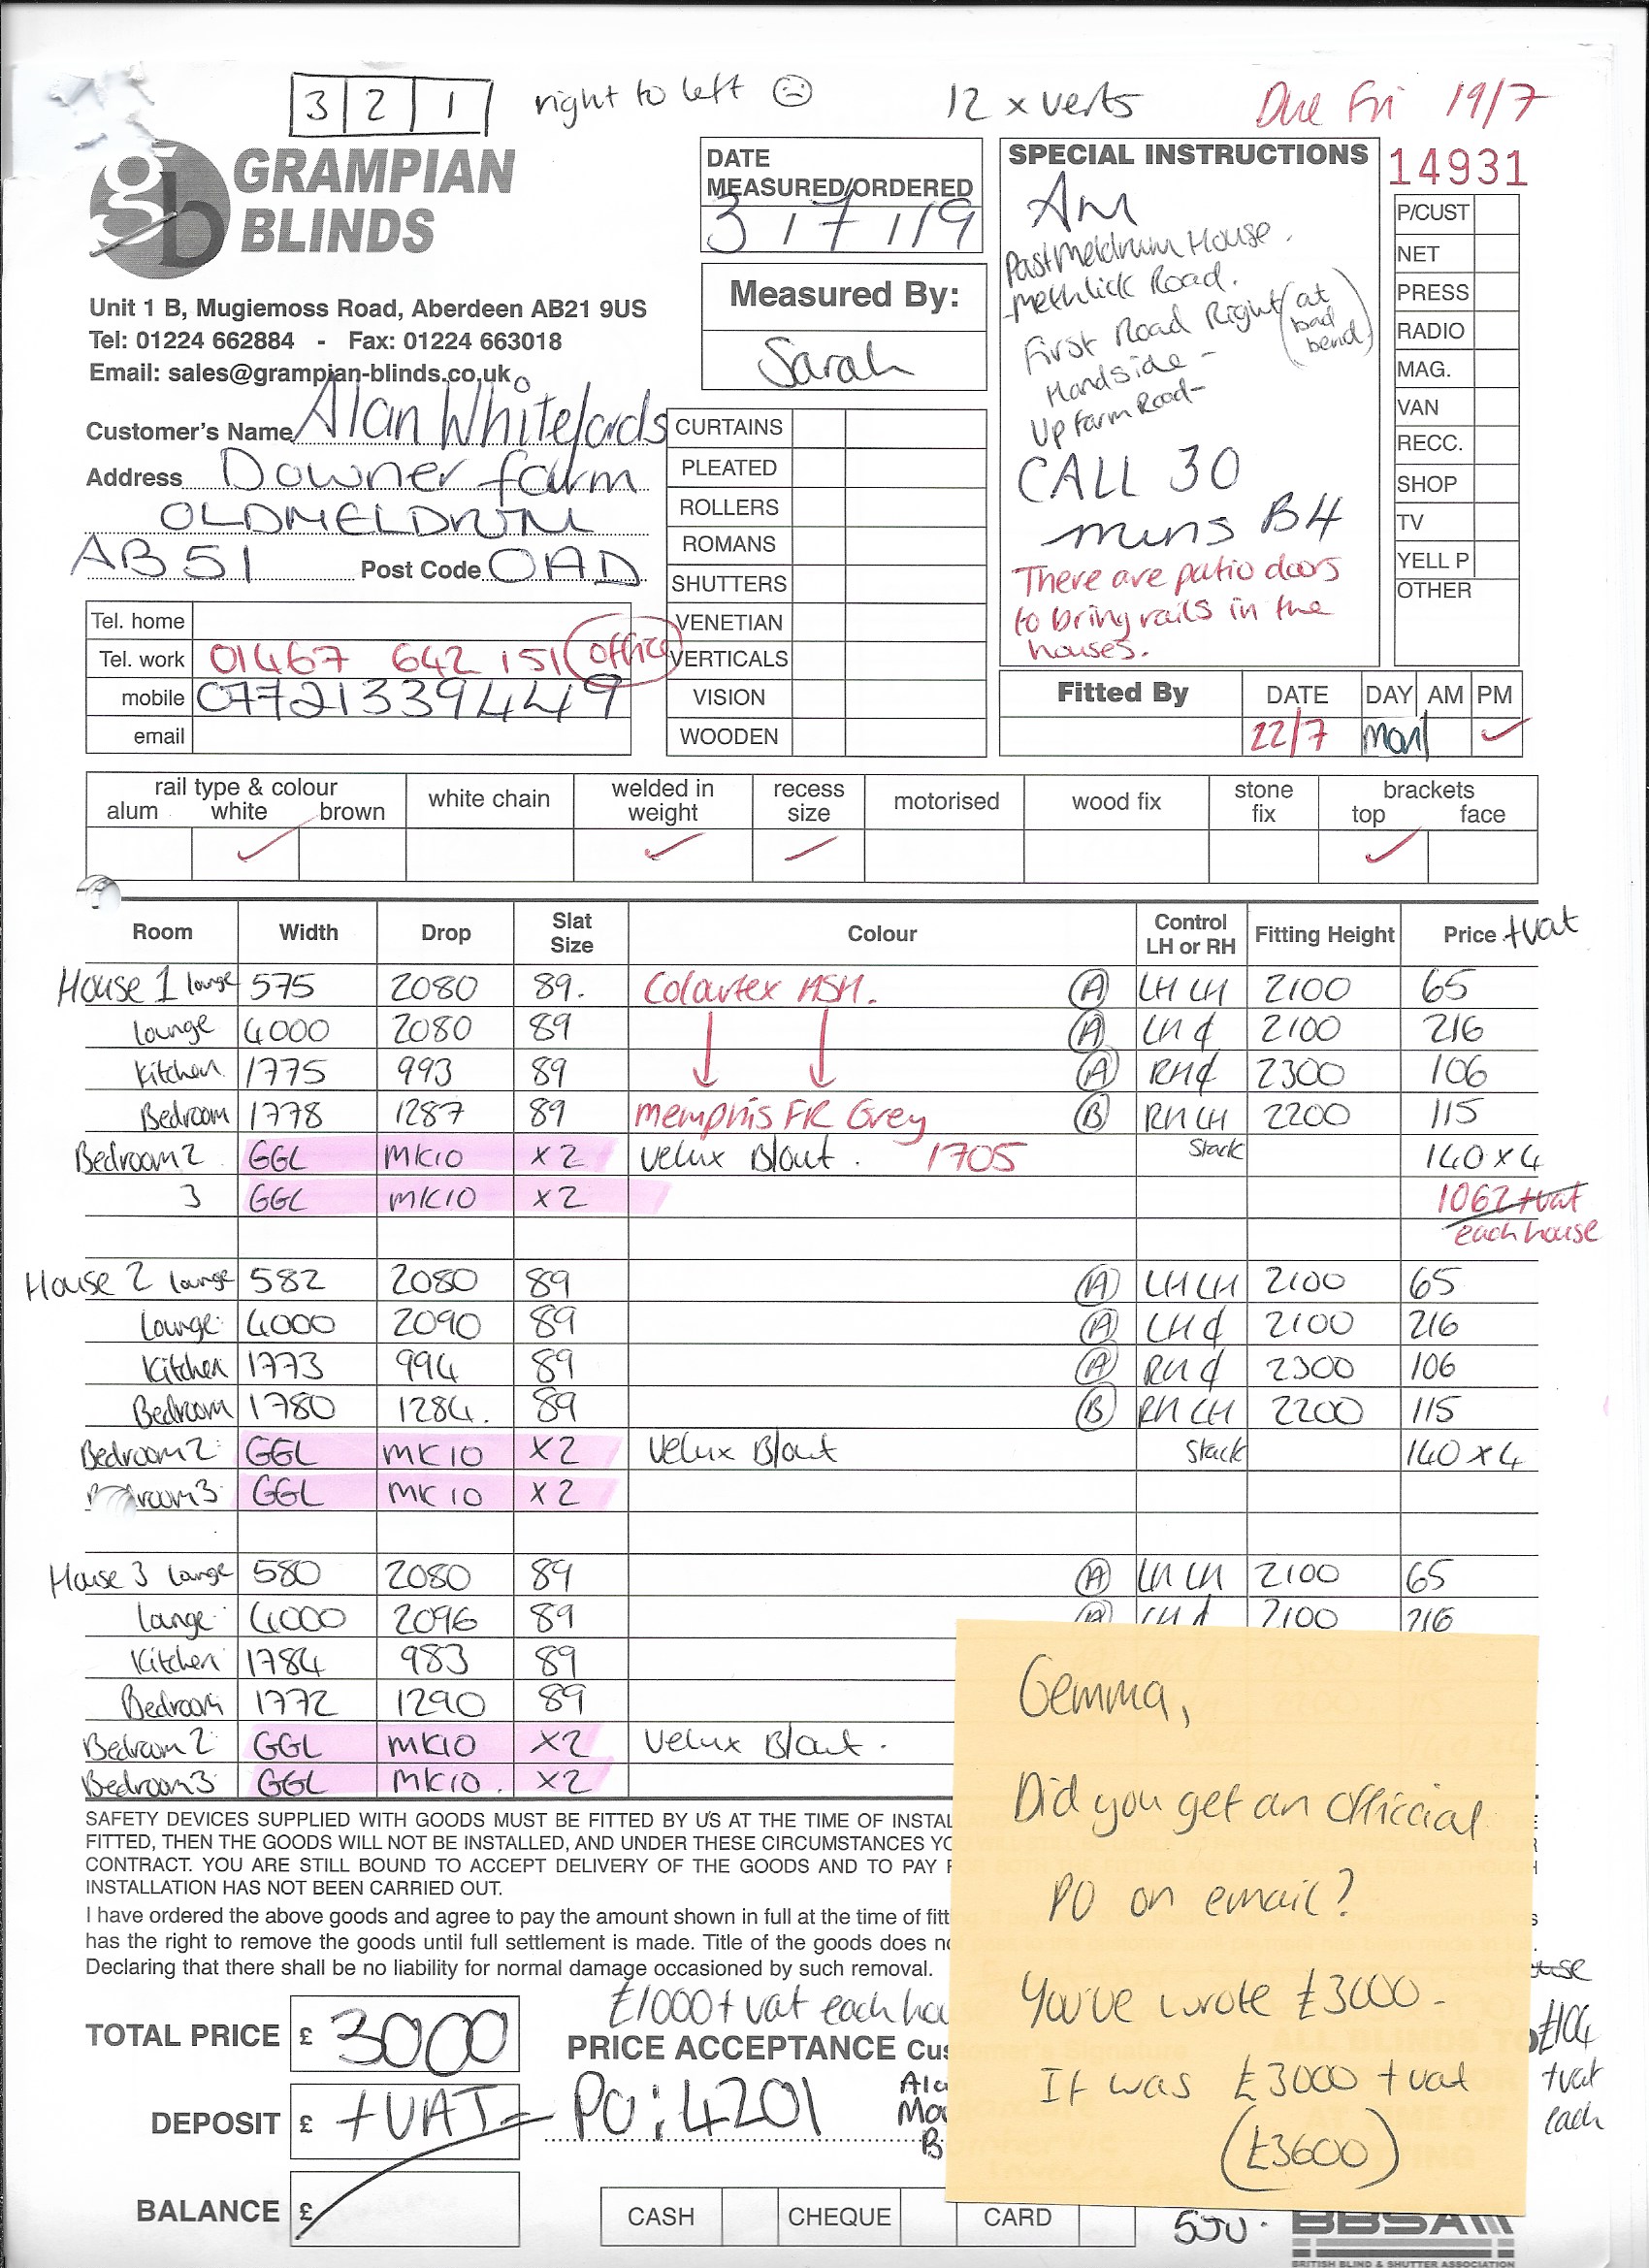 3 2 1 right to left ☹ 12 x verts Due Fri 19/7
GRAMPIAN
BLINDS
gb
Unit 1 B, Mugiemoss Road, Aberdeen AB21 9US
Tel: 01224 662884 - Fax: 01224 663018
Email: sales@grampian-blinds.co.uk
DATE
MEASURED/ORDERED
3/7/19
Measured By:
Sarah
SPECIAL INSTRUCTIONS
AM
Past Meldrum House.
Methlick Road.
First Road Right (at bad bend)
Handside -
Up Farm Road -
CALL 30
mins B4
There are patio doors
to bring rails in the
houses.
14931
P/CUST
NET
PRESS
RADIO
MAG.
VAN
RECC.
SHOP
TV
YELL P
OTHER
Customer's Name Alan Whitefords
Address Downer farm
OLDMELDRUM
AB51 Post Code 0AD
Tel. home
Tel. work 01467 642 151 (office)
mobile 07721339449
email
CURTAINS
PLEATED
ROLLERS
ROMANS
SHUTTERS
VENETIAN
VERTICALS
VISION
WOODEN
Fitted By DATE DAY AM PM
22/7 Mon ✓
rail type & colour white chain welded in weight recess size motorised wood fix stone fix brackets
alum white brown top face
✓ ✓ ✓ ✓
Room Width Drop Slat Size Colour Control LH or RH Fitting Height Price +vat
House 1 lounge 575 2080 89. Colourtex ASH. A LH LH 2100 65
lounge 4000 2080 89 A LH ¢ 2100 216
Kitchen 1775 993 89 A RH ¢ 2300 106
Bedroom 1778 1287 89 memphis FR Grey B RH LH 2200 115
Bedroom 2 GGL MK10 x2 Velux B/out. 1705 Stack 140 x 4
3 GGL MK10 x2 1062 +vat
each house
House 2 lounge 582 2080 89 A LH LH 2100 65
lounge 4000 2090 89 A LH ¢ 2100 216
Kitchen 1773 994 89 A RH ¢ 2300 106
Bedroom 1780 1284. 89 B RH LH 2200 115
Bedroom 2 GGL MK10 x2 Velux B/out Stack 140 x 4
room 3 GGL MK10 x2
House 3 lounge 580 2080 89 A LH LH 2100 65
lounge 4000 2096 89 A LH ¢ 2100 216
Kitchen 1784 983 89
Bedroom 1772 1290 89
Bedroom 2 GGL MK10 x2 Velux B/out.
Bedroom 3 GGL MK10. x2
SAFETY DEVICES SUPPLIED WITH GOODS MUST BE FITTED BY US AT THE TIME OF INSTAL
FITTED, THEN THE GOODS WILL NOT BE INSTALLED, AND UNDER THESE CIRCUMSTANCES YO
CONTRACT. YOU ARE STILL BOUND TO ACCEPT DELIVERY OF THE GOODS AND TO PAY
INSTALLATION HAS NOT BEEN CARRIED OUT.
I have ordered the above goods and agree to pay the amount shown in full at the time of fitt
has the right to remove the goods until full settlement is made. Title of the goods does n
Declaring that there shall be no liability for normal damage occasioned by such removal.
£1000 + vat each ho
TOTAL PRICE £ 3000
PRICE ACCEPTANCE Cus
DEPOSIT £ +VAT = PO: 4201
BALANCE £
CASH CHEQUE CARD
Gemma,
Did you get an official
PO on email?
You've wrote £3000 -
It was £3000 + vat
(£3600)
+vat
each
BBSA
BRITISH BLIND & SHUTTER ASSOCIATION